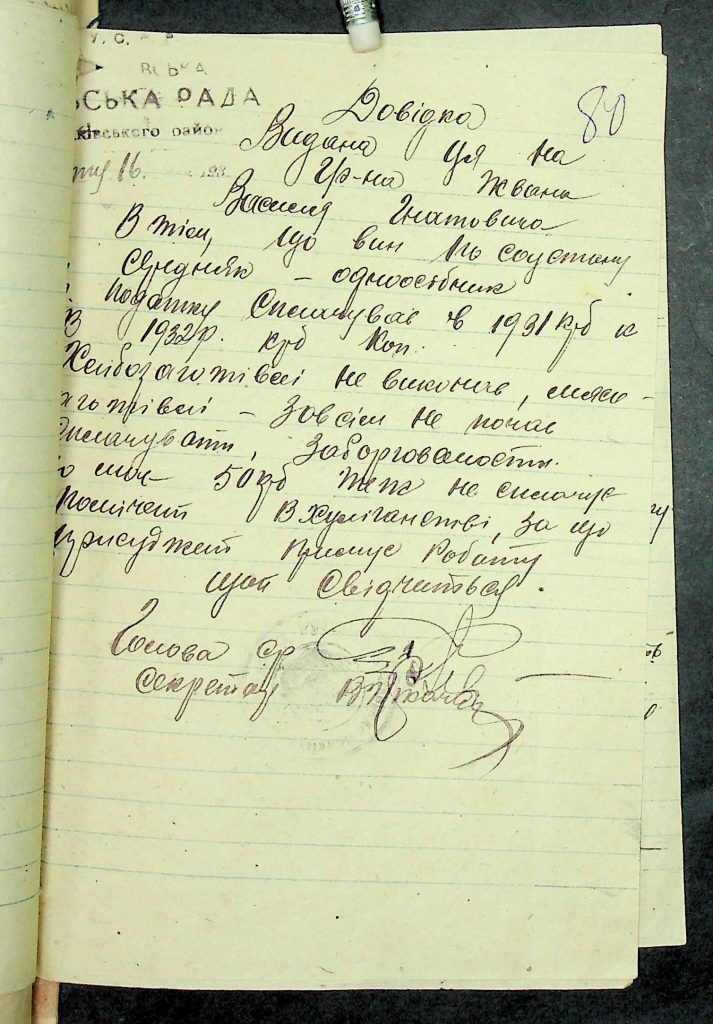 У. С. Р. Р
ВСЬКА
ВСЬКА РАДА
ківського район
16. 193
80
Довідка
Видана ця на
гр-на Жвана
Василя Гнатовича
В тім, що вин по соцстану
Середняк – одноосібник
податку Сплачував в 1931 крб к
В 1932р. крб коп.
Хлібозаготівлі не виконав, мясо-
заготівлі – Зовсім не почав
Сплачувати, Заборгованости
50 крб теж не сплачує
Помічен В хуліганстві, за що
присуджен примус роботу
що й Свідчиться.
Голова ср
Секретар